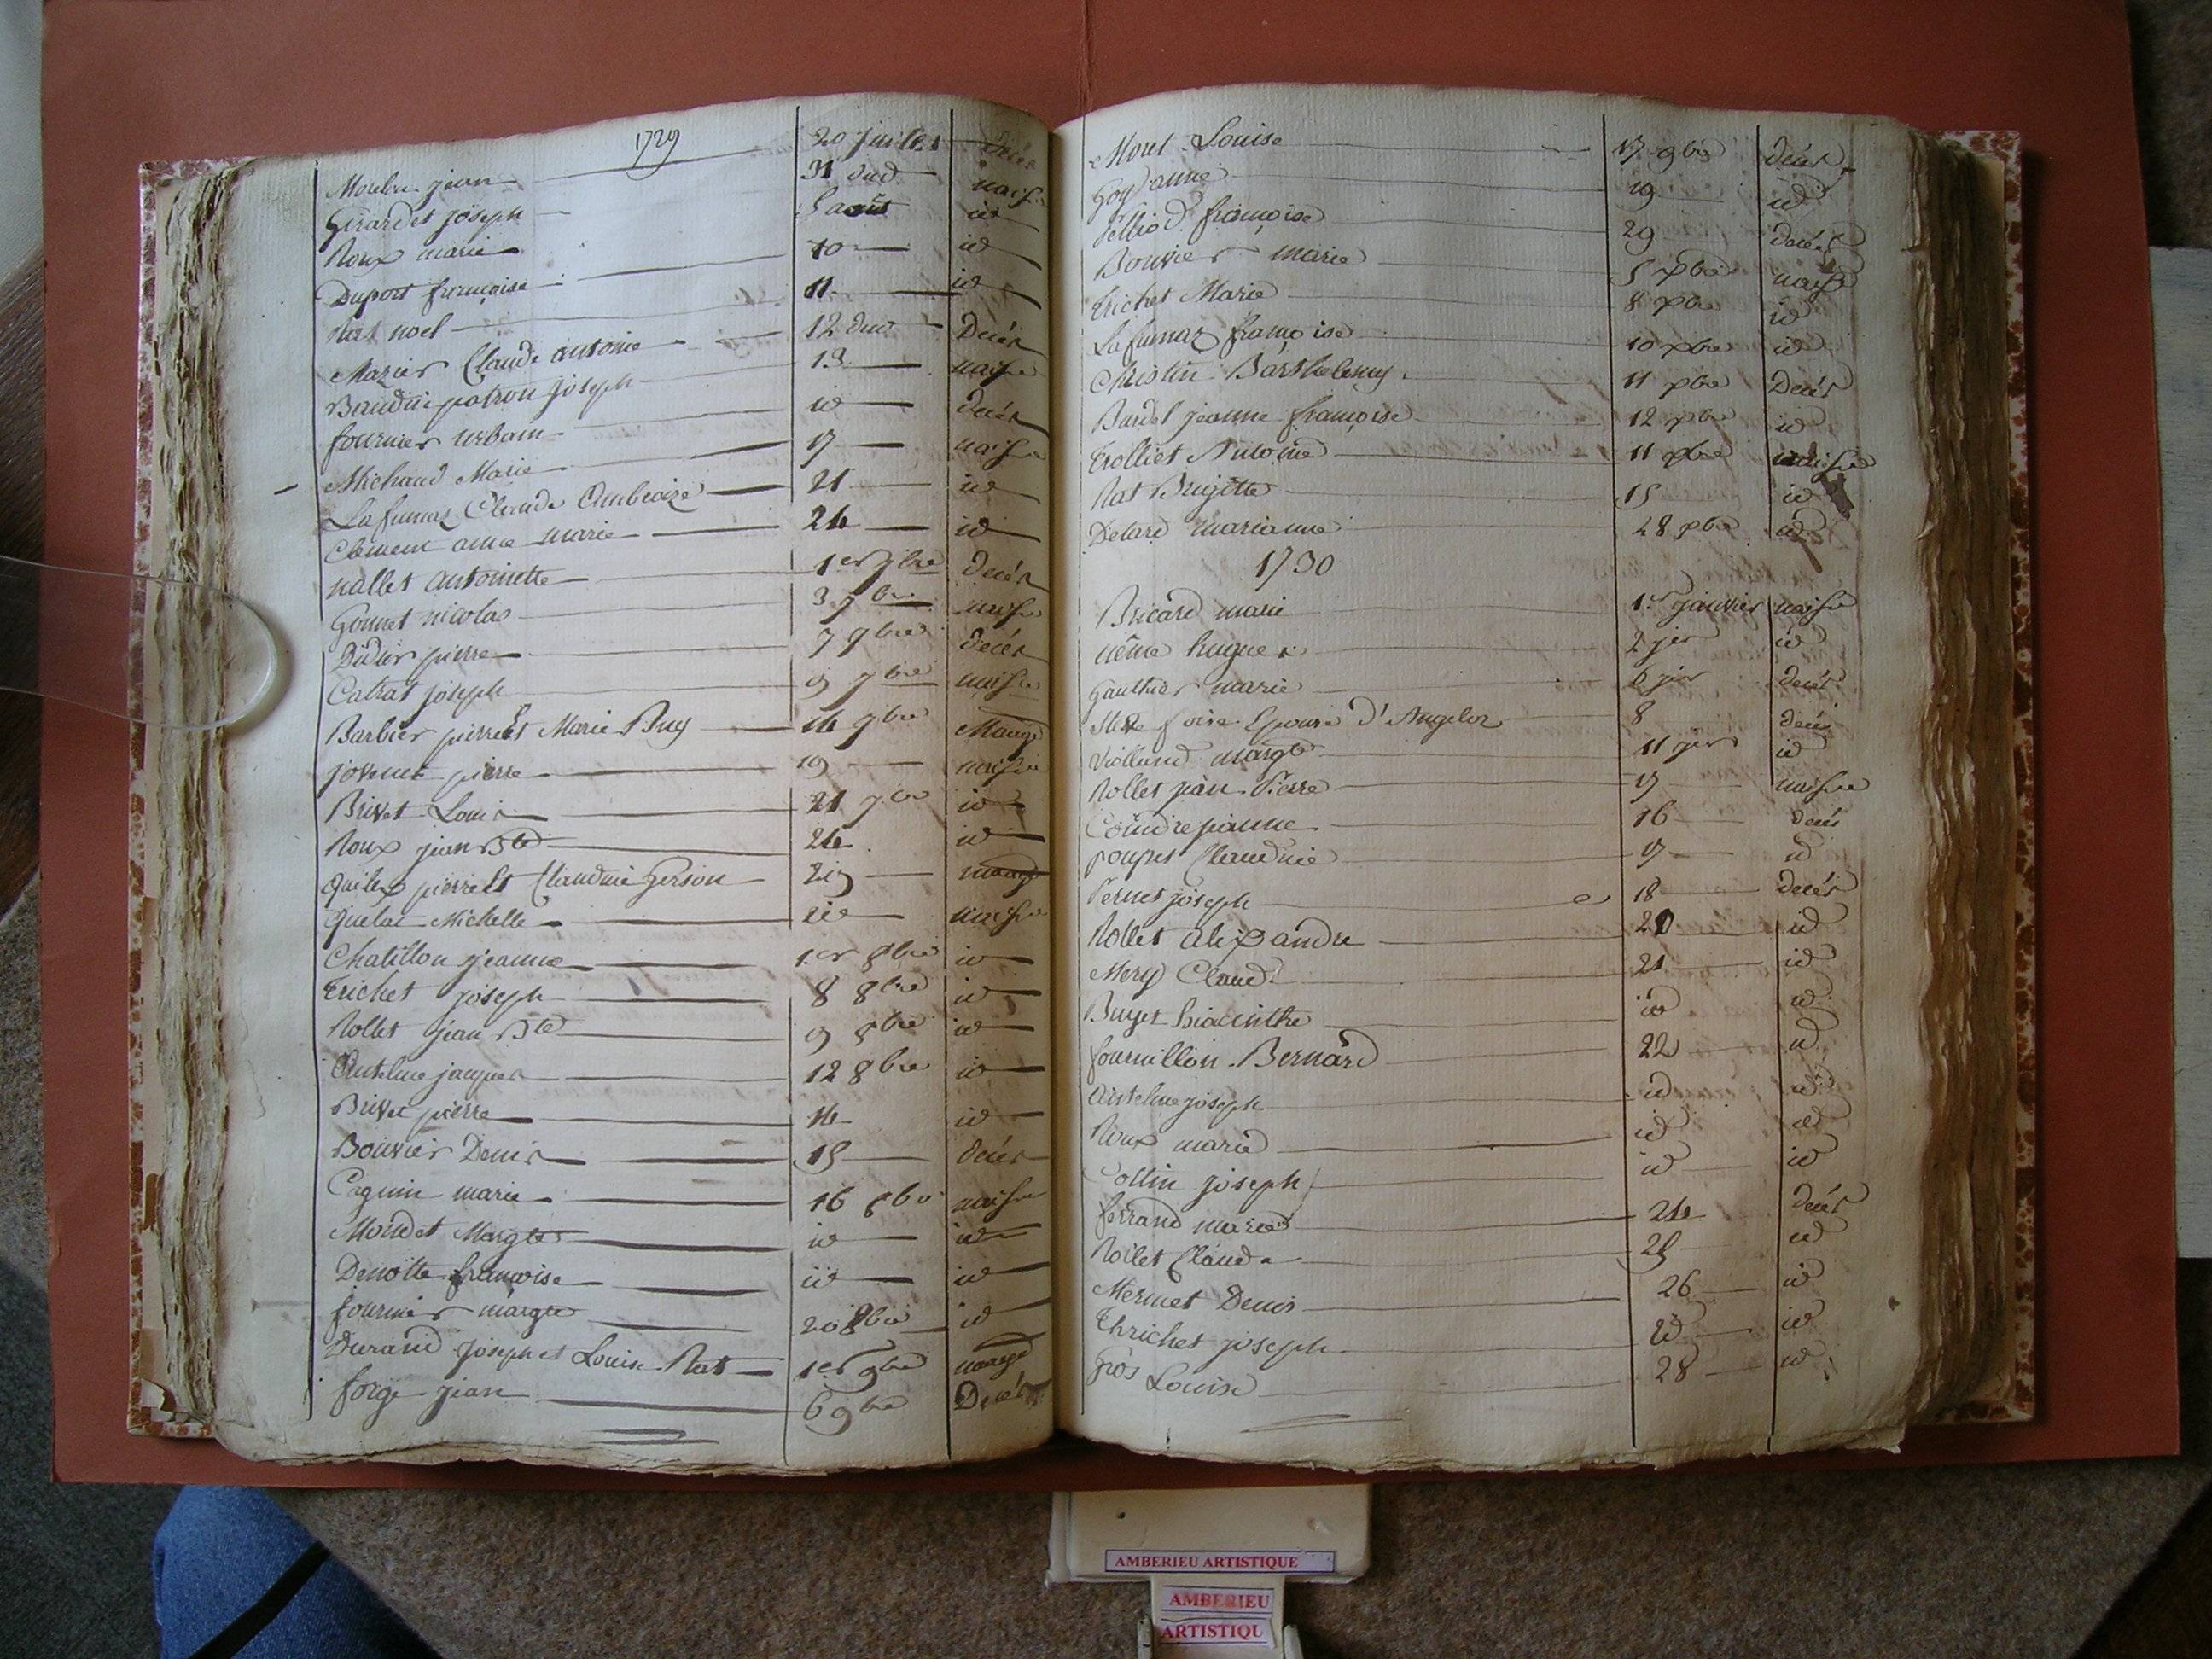 1729
Moulin jean 20 juillet Decés
Girardet joseph 31 dud. naisce
Roux marie 5 aout id
Duport francoise 10 id
Rat noel 11 id
Mazier Claude antoine 12 dud Decés
Baudin patron joseph 13 naisce
fournier urbain id decés
Michaud Marie 17 naisce
Lafumaz Claude Ambroize 21 id
Clement anne marie 24 id
nallet antoinette 1er 7bre decés
Gonnet nicolas 3 7bre naisce
Didier pierre 7 7bre decés
Catrat joseph 9 7bre naisce
Barbier pierre Et Marie Buy 14 7bre Mariage
jovenet pierre 19 naisce
Brivet Louis 21 7bre id
Roux jean Bte 24 id
pierre Et Claudine Gerson 29 mariage
Michelle id naisce
Chatillon jeanne 1er 8bre id
Trichet joseph 8 8bre id
Rollet jean Bte 9 8bre id
Antelme jacques 12 8bre id
Brivet pierre 14 id
Bouvier Denis 15 decés
Cagnin marie 16 8bre naisce
Mondet Margte id id
francoise id id
fournier margte 20 8bre id
Durand joseph et Louise Rat 1er 9bre mariage
forge jean 6 9bre Decés
Moret Louise 17 9bre decés
Goy anne 19 id
francoise 29 decés
Bouvier marie 5 Xbre naisce
Trichet Marie 8 Xbre id
Lafumaz francoise 10 Xbre id
Christin Barthelemy 11 Xbre Decés
Bardet jeanne francoise 12 Xbre id
Trolliet Antoine 11 Xbre naisce
Rat Brigitte 15 id
Delard marianne 28 Xbre id
1730
Bricard marie 1er janvier naisce
nême hugues 2 jer id
Gauthier marie 6 jer decés
foise Epouse D'Angeloz 8 decés
Violland margte 11 jer id
Rollet jean Pierre 17 naisce
Coindre jeanne 16 decés
poupet Claudine 17 id
Pernet joseph 18 decés
Rollet alexandre 20 id
Mery Claud. 21 id
Buyet hiacinthe id id
fournillon Bernard 22 id
antelme joseph id id
Roux marie id id
Collin joseph id id
ferrand marie 24 decés
Rollet Claude 25 id
Mermet Denis 26 id
Thrichet joseph id id
Gros Louise 28 id
AMBERIEU ARTISTIQUE
AMBERIEU
ARTISTIQU